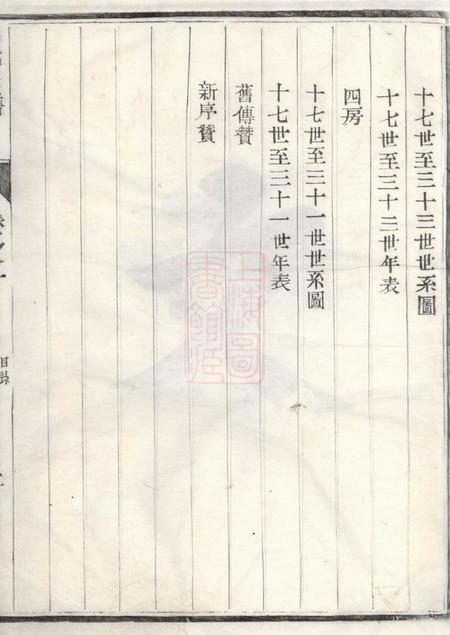 十七世至三十三世世系圖
十七世至三十三世年表
四房
十七世至三十一世世系圖
十七世至三十一世年表
舊傳贊
新序贊
上海圖
書館臧
目錄